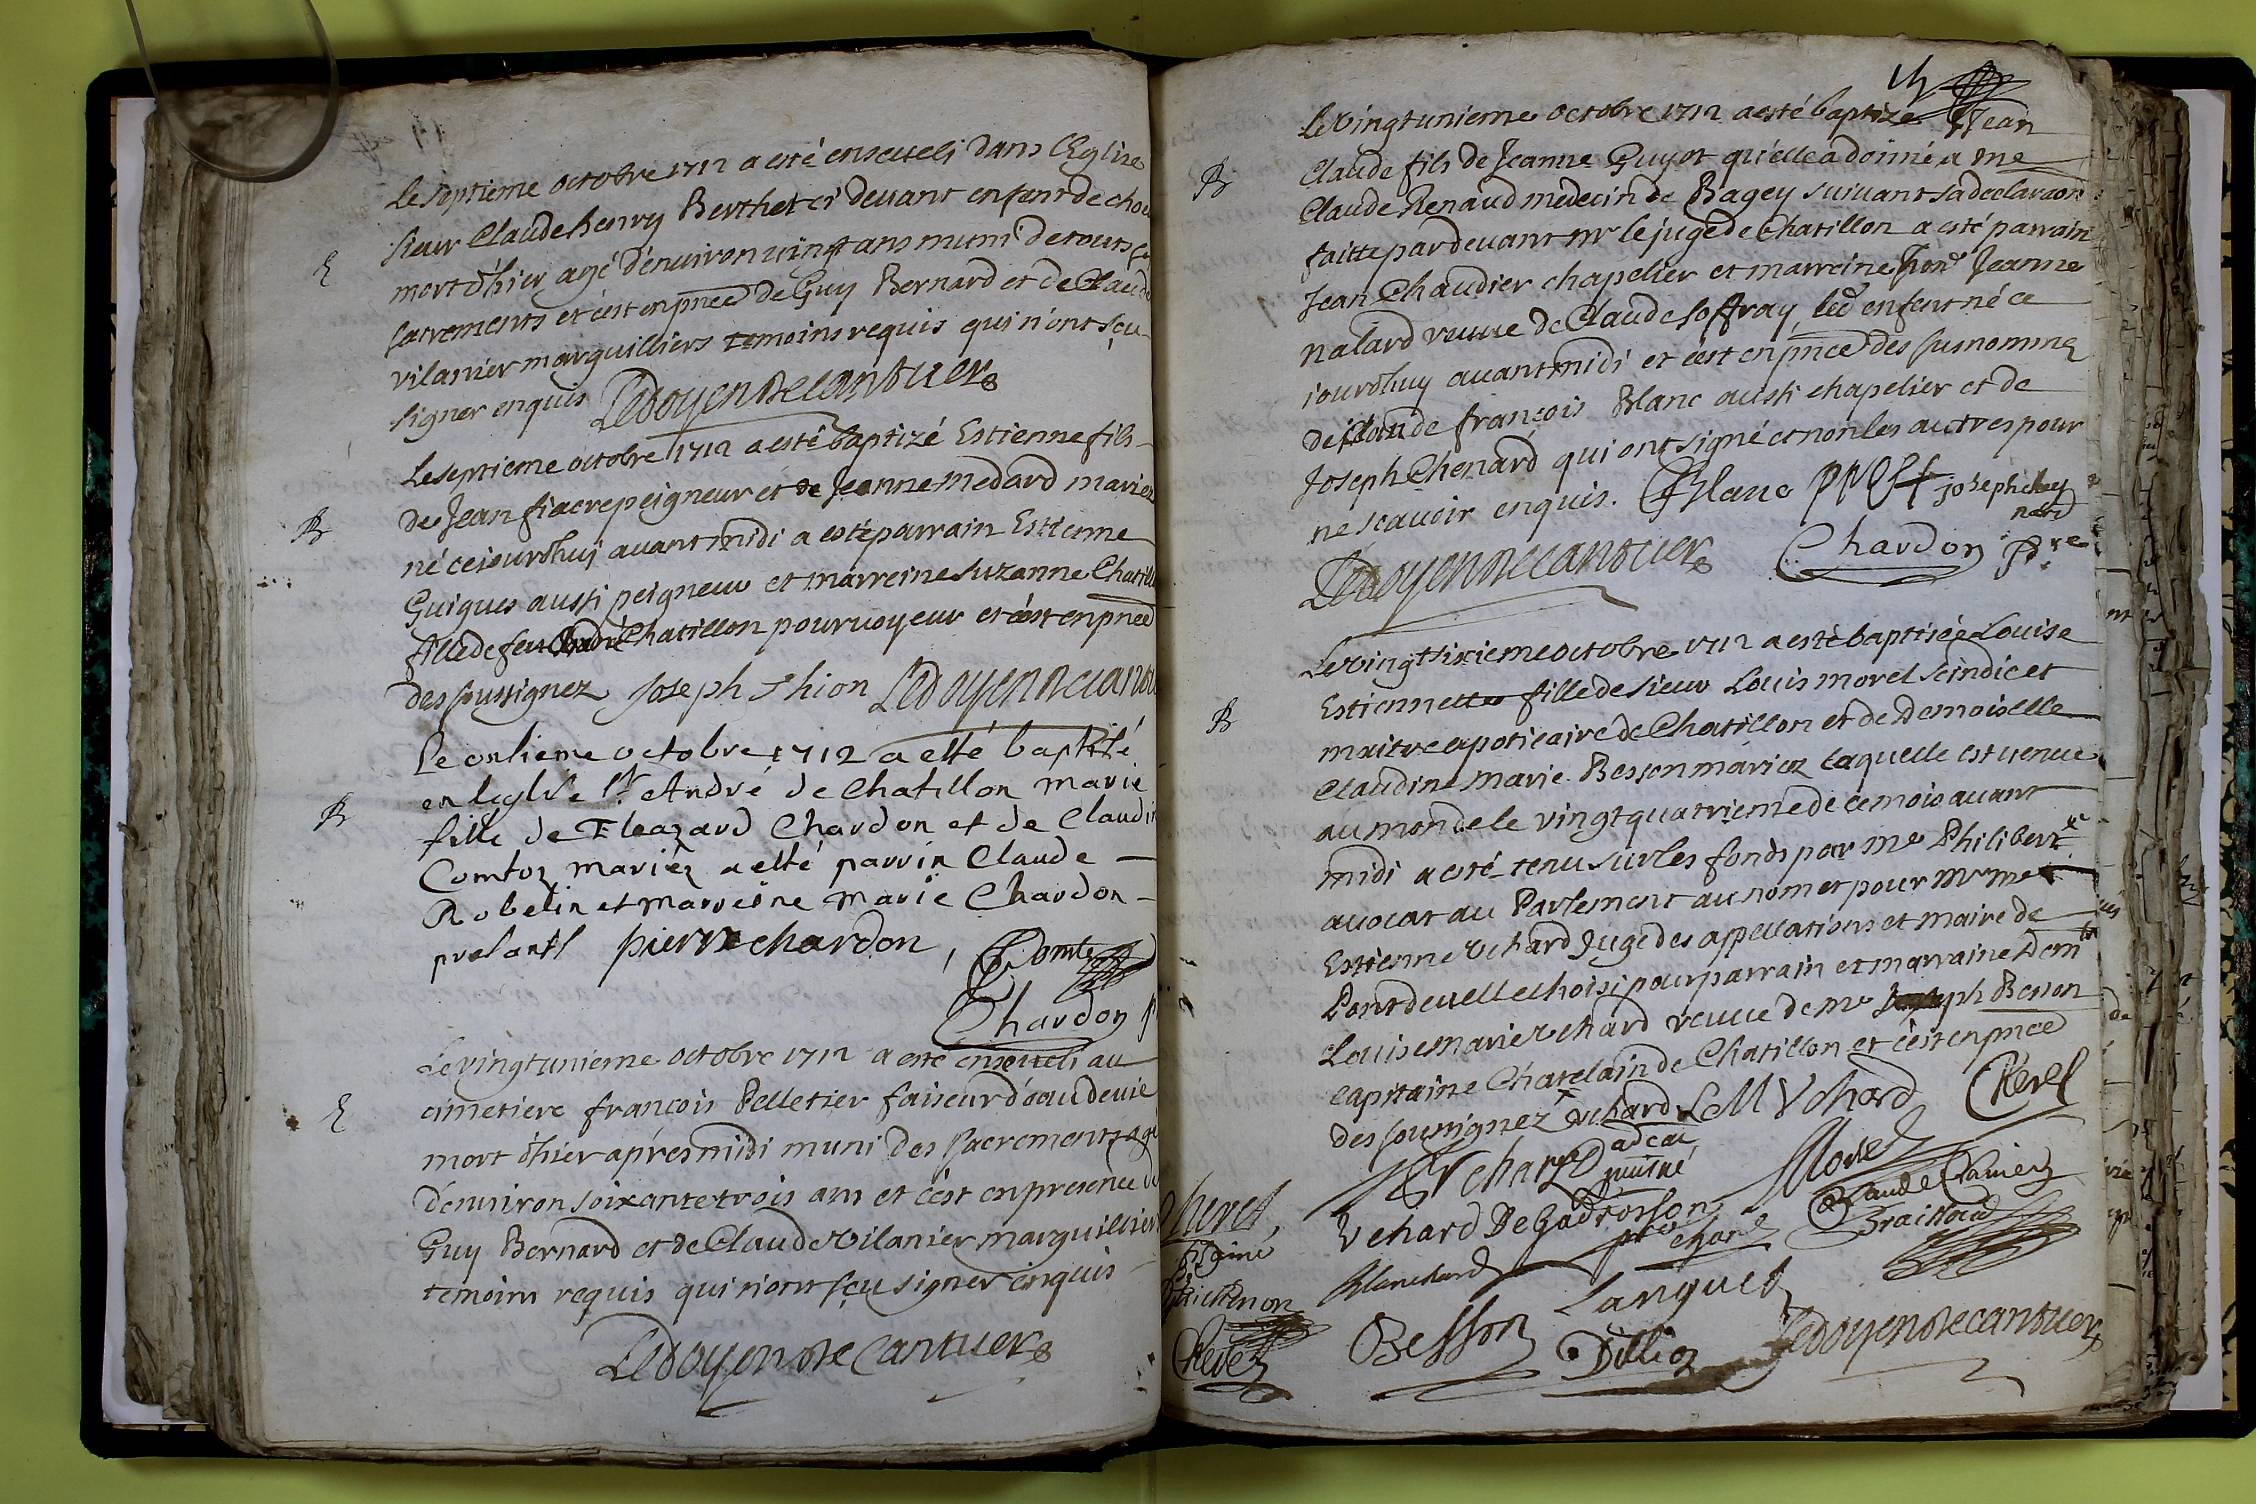 Le septieme octobre 1712 a esté enseveli dans l'Eglise
sieur Claude henry Berthet ci devant enfent de choe
E
mort d'hier agé d'environ vingt ans muni de touts ses
sacrements et c'est en pnce de Guy Bernard et de Claude
vilanier marguilliers temoins requis qui n'ont sçu
signer enquis Ledoyen de Cantuer
Le septieme octobre 1712 a esté baptizé Estienne fils
B
de Jean fiacre peigneur et de Jeanne medard mariez
né ce jourdhuy avant midi a esté parrain Estienne
Guigues aussi peigneur et marreine Suzanne Chatill
fille de feu André Chatillon pourvoyeur et c'est en pnce
des soussignez Joseph Thion Ledoyen de Cantu
Le onsieme octobre 1712 a esté baptisé
en leglise St André de Chatillon Marie
B
fille de Eleazard Chardon et de Claudi
Comtoz mariez a esté parrin Claude
Robelin et marreine Marie Chardon
presants pierre chardon, Comte
Chardon p
Le vingt unieme octobre 1712 a esté enseveli au
E
cimetiere françois Pelletier faiseur d'eau de vie
mort d'hier aprés midi muni des sacrements agé
d'environ soixante trois ans et c'est en presence de
Guy Bernard et de Claude Vilanier marguillier
temoins requis qui n'ont sçu signer enquis
Ledoyen de Cantuer
Le Vingt unieme octobre 1712 a esté baptizé Jean
B
Claude fils de Jeanne Guyot qu'elle a donné a me
Claude Renaud medecin de Bagey suivant sa declaraon
faitte par devant mr le juge de Chatillon a esté parrain
Jean Chaudier chapelier et marreine honê Jeanne
nalard veuve de Claude Joffray led enfent né ce
jourdhuy avant midi et c'est en pnce des susnommez
de Claude françois Blanc aussi chapelier et de
Joseph Chenard qui ont signé et non les autres pour
ne scavoir enquis. CfBlanc prost joseph che
nard
Ledoyen de Cantuer Chardon Ptre
Le Vingt sixieme octobre 1712 a esté baptisée Louise
B
Estiennette fille de sieur Louis morel Scindic et
maitre apoticaire de Chatillon et de Demoiselle
Claudine Marie Besson mariez laquelle est venue
au monde le vingt quatrieme de ce mois avant
midi a esté tenu sur les fonds par me Philibert
avocat au Parlement au nom et pour Mr me
Estienne Vchard Juge des appellations et maire de
Pontdevelle choisi pour parrain et marraine Demlle
Louise marie Vchard veuve de mr Joseph Besson
capitaine Chatelain de Chatillon et c'est en pnce
des sousignez Vchard L M Vchard Cheret
Vchard puisné Morel
Cheret, Vchard De Gadrorson Claude
Blanchard
Besson Languet Dillioz Ledoyen de Cantuer
Cheret